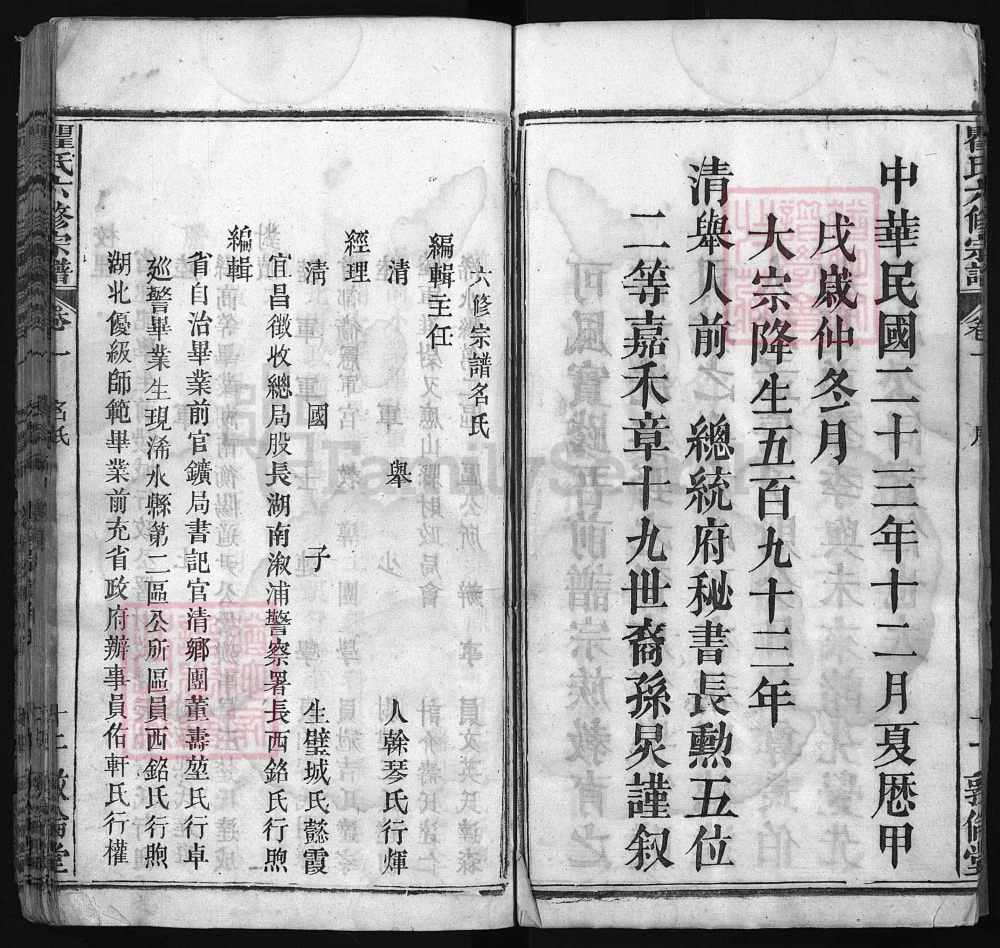 中華民國二十三年十二月夏厯甲
戌歲仲冬月
大宗降生五百九十三年
清舉人前　總統府秘書長勳五位
二等嘉禾章十九世裔孫炅謹叙
瞿氏六修宗譜
卷一
敦倫堂
六修宗譜名氏
編輯主任
清　舉　人翰琴氏行煇
經理
清　國　子　生璧城氏懿霞
宜昌徵收總局股長湖南溆浦警察署長西銘氏行煦
編輯
省自治畢業前官鑛局書記官清鄉團董壽堃氏行卓
廵警畢業生現浠水縣第二區公所區員西銘氏行煦
湖北優級師範畢業前充省政府辦事員佑軒氏行權
瞿氏六修宗譜
卷一
名氏
十二
敦倫堂